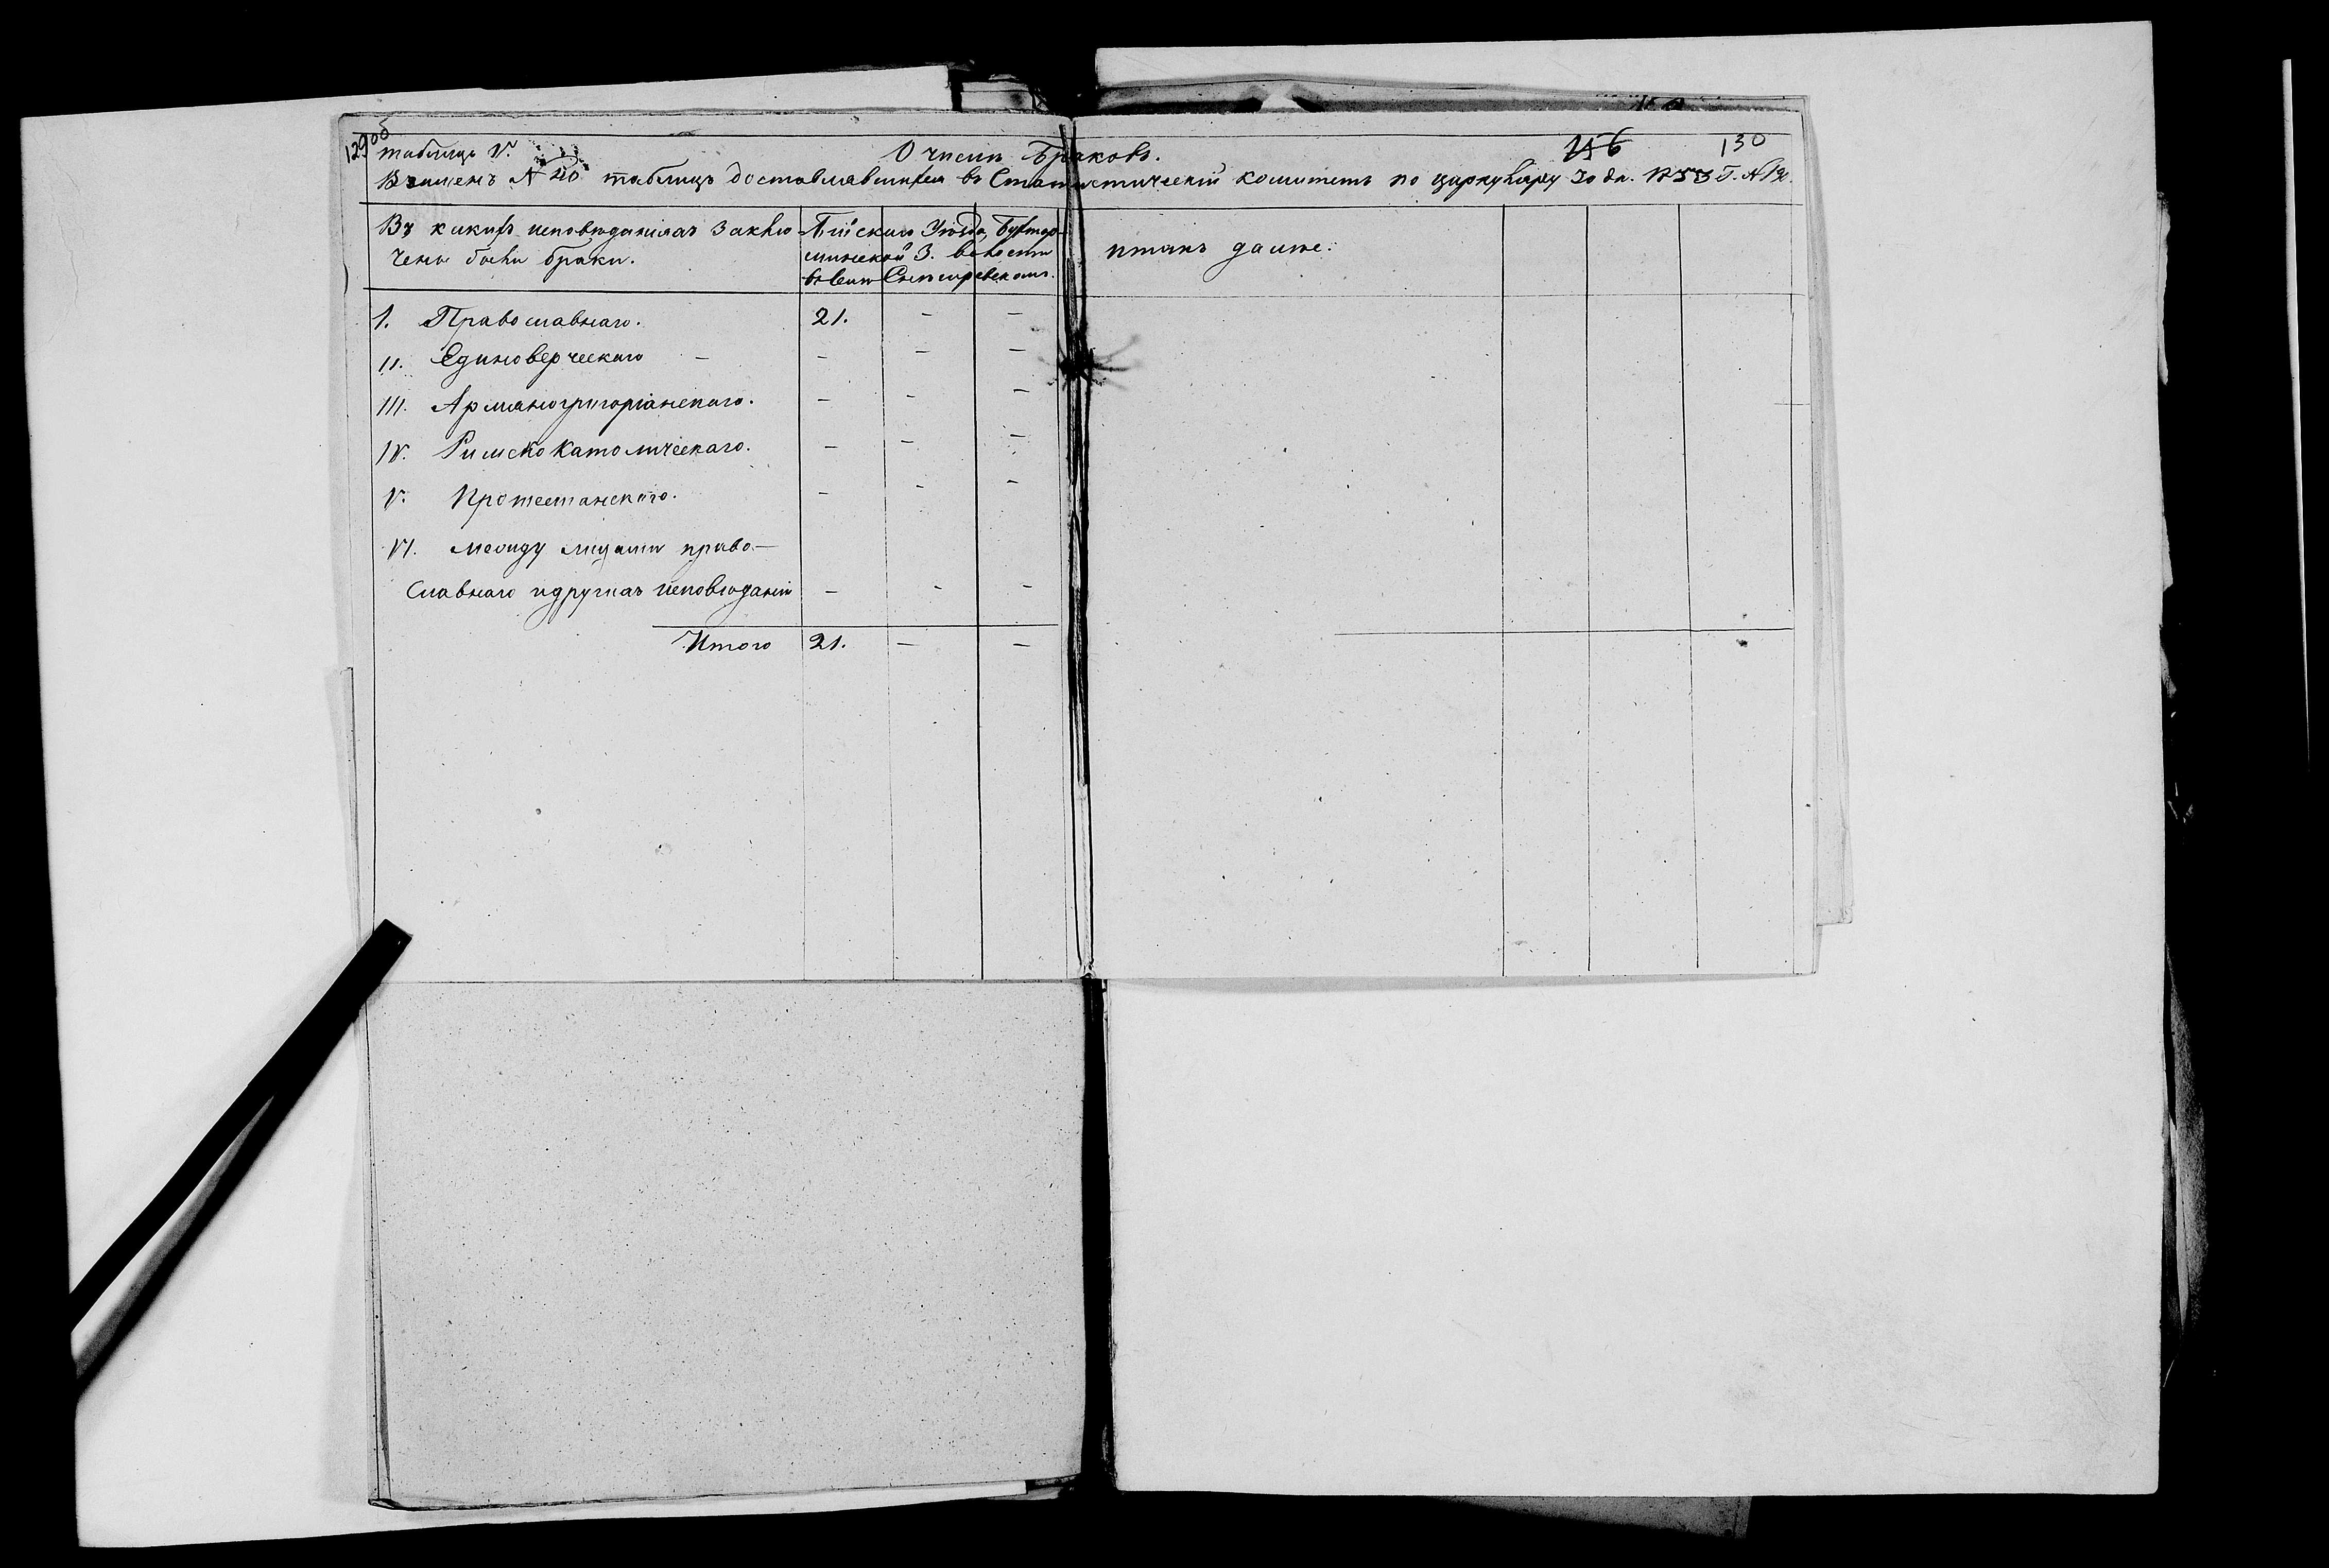 129 об
156
130
таблица V.
О числѣ Браковъ.
Взаменъ № 20 таблицъ доставлявшихся въ Статистическій комитетъ по циркуляру 30 дк. 1853 г. №
Въ какихъ исповѣданіяхъ заклю
чены были браки.
Бійскаго Уѣзда, Бухтар-
минской 3. волости
въ селѣ
и такъ далѣе.
I. Православнаго. 21. - -
II. Единоверческаго - - - -
III. Арманогригоріанскаго. - - -
IV. Римско Католическаго. - - -
V. Протестанскаго. - - -
VI. Между лицами право-
славнаго и другихъ исповѣданій - - -
Итого 21. - -